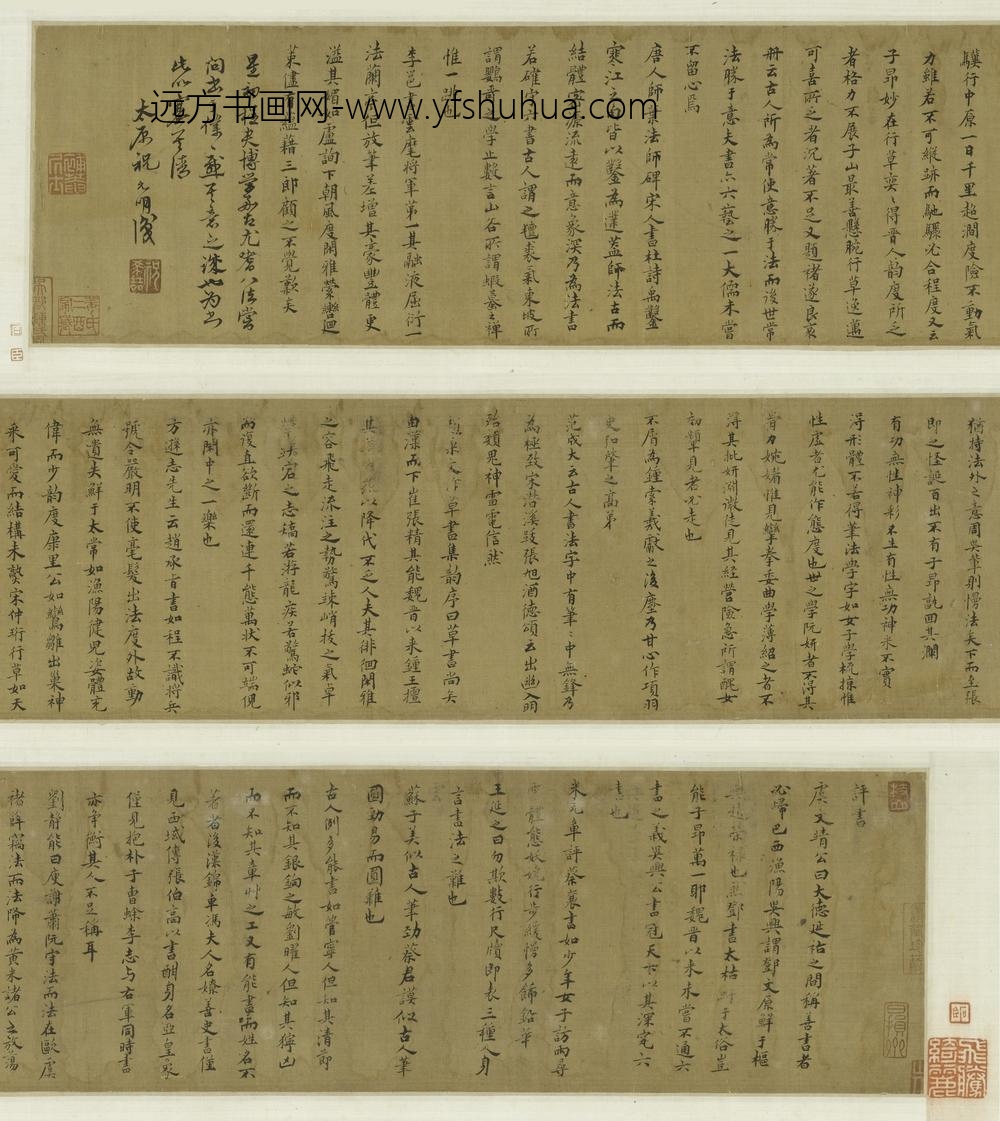 評書
虞文靖公曰大德延祐之間稱善書者
必歸巴西漁陽吳興謂鄧文原鮮于樞
也然鄧書太枯鮮于太俗豈
能子昂萬一耶魏晉以來未嘗不通六
書之義吳興公書冠天下以其深究六
書也
米元章評蔡襄書如少年女子訪雨尋
雲體態妖嬈行步緩慢多飾鉛華
王延之曰勿欺數行尺牘即表三種人身
言書法之難也
蘇子美似古人筆勁蔡君謨似古人筆
圓勁易而圓難也
古人例多能書如管寧人但知其清節
而不知其銀鉤之敏劉曜人但知其獰凶
而不知其章草之工又有能書而姓名不
著者後漢錦車馮夫人名嫽善史書僅
見西域傳張伯高以書酣身名亞皇象
僅見抱朴子曹蜍李志与右軍同時書
亦爭衡其人不足稱耳
劉靜能曰庾謝蕭阮守法而法在歐虞
褚眸竊法而法降為黃米諸公之放蕩
猶持法外之意周吳輩則慢法矣下而至張
即之怪誕百出不有子昂孰回其瀾
有功無性神彩不生有性無功神采不實
得形體不若得筆法學字如女子學梳掠惟
性虛者尤能作態度也世之學阮妍者不得其
骨力婉媚惟見攣拳委曲學薄紹之者不
得其批妍淵微徒見其經營險急所謂醜女
初顰見者必走也
不屑為鍾索羲獻之後塵乃甘心作項羽
史和肇之高弟
范成大云古人書法字中有筆筆中無鋒乃
為極致宋潛溪跋張旭酒德頌云出幽入明
殆類鬼神雷電信然
草書集韵序曰草書尚矣
由漢而下崔張精其能魏晉以來鍾王擅
其以降代不乏人夫其徘徊閑雅
之容飛走流注之勢驚竦峭拔之氣卓
犖跌宕之志矯若游龍疾若驚蛇似邪
而復直欲斷而還連千態萬狀不可端倪
亦閑中之一樂也
方遜志先生云趙承旨書如程不識將兵
號令嚴明不使毫髮出法度外故動
無遺失鮮于太常如漁陽健兒姿體充
偉而少韵度康里公如鸞雛出巢神
采可愛而結構未熟宋仲珩行草如天
驥行中原一日千里超澗度險不動氣
力雖若不可縱跡而馳驟必合程度又云
子昂妙在行草奕奕得晉人韵度所乏
者格力不展子山最善懸腕行草逸邁
可喜所乏者沉著不足又題褚遂良哀
冊云古人所為常使意勝于法而後世常
法勝于意夫書六六藝之一大儒未嘗
不留心焉
唐人師章法師碑宋人書杜詩禹鑿
寒江之句皆以鑿為蓋師法古而
結體密源流遠而意象深乃為法書
若確守其書古人謂之氊裘氣東坡所
謂鸚哥之學止數言山谷所謂蝦蟇之禪
惟一跳
李邕書雲麾將軍第一其融液屈衍一
法蘭亭但放筆差增其豪豐體更
溢其媚如盧詢下朝風度閑雅縈轡迴
策儘有蘊藉三郎顧之不覺歎矣
星初大夫博學嘉古尤耆八法嘗
問書
太原祝允明識
远方书画网-www.yfshuhua.com